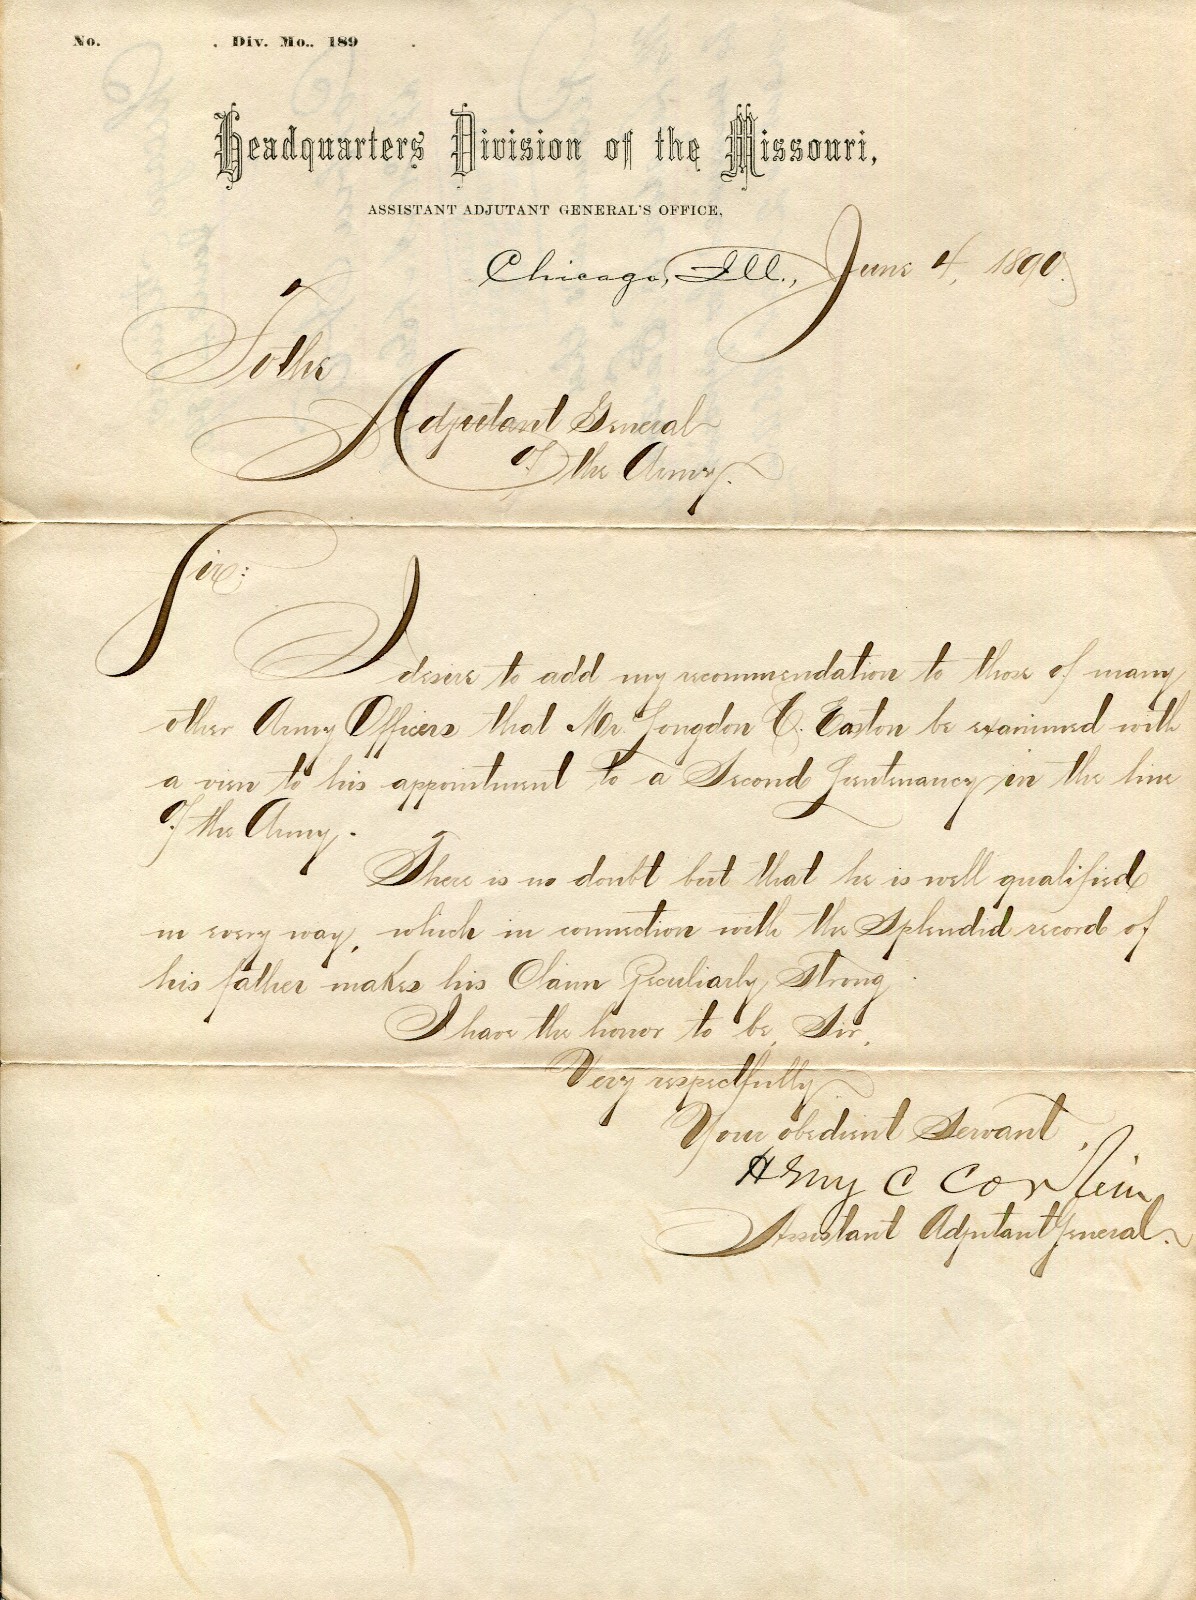 No. . Div. Mo.. 189 .
Headquarters Division of the Missouri,
ASSISTANT ADJUTANT GENERAL'S OFFICE,
Chicago, Ill., June 4, 1890.
To the
Adjutant General
of the Army.
Sir:
I desire to add my recommendation to those of many
other Army Officers that Mr. Longdon C. Easton be examined with
a view to his appointment to a Second Lieutenancy in the line
of the Army.
There is no doubt but that he is well qualified
in every way, which in connection with the Splendid record of
his father makes his Claim Peculiarly Strong.
I have the honor to be, Sir,
Very respectfully
Your obedient Servant,
Henry C Corbin
Assistant Adjutant General.